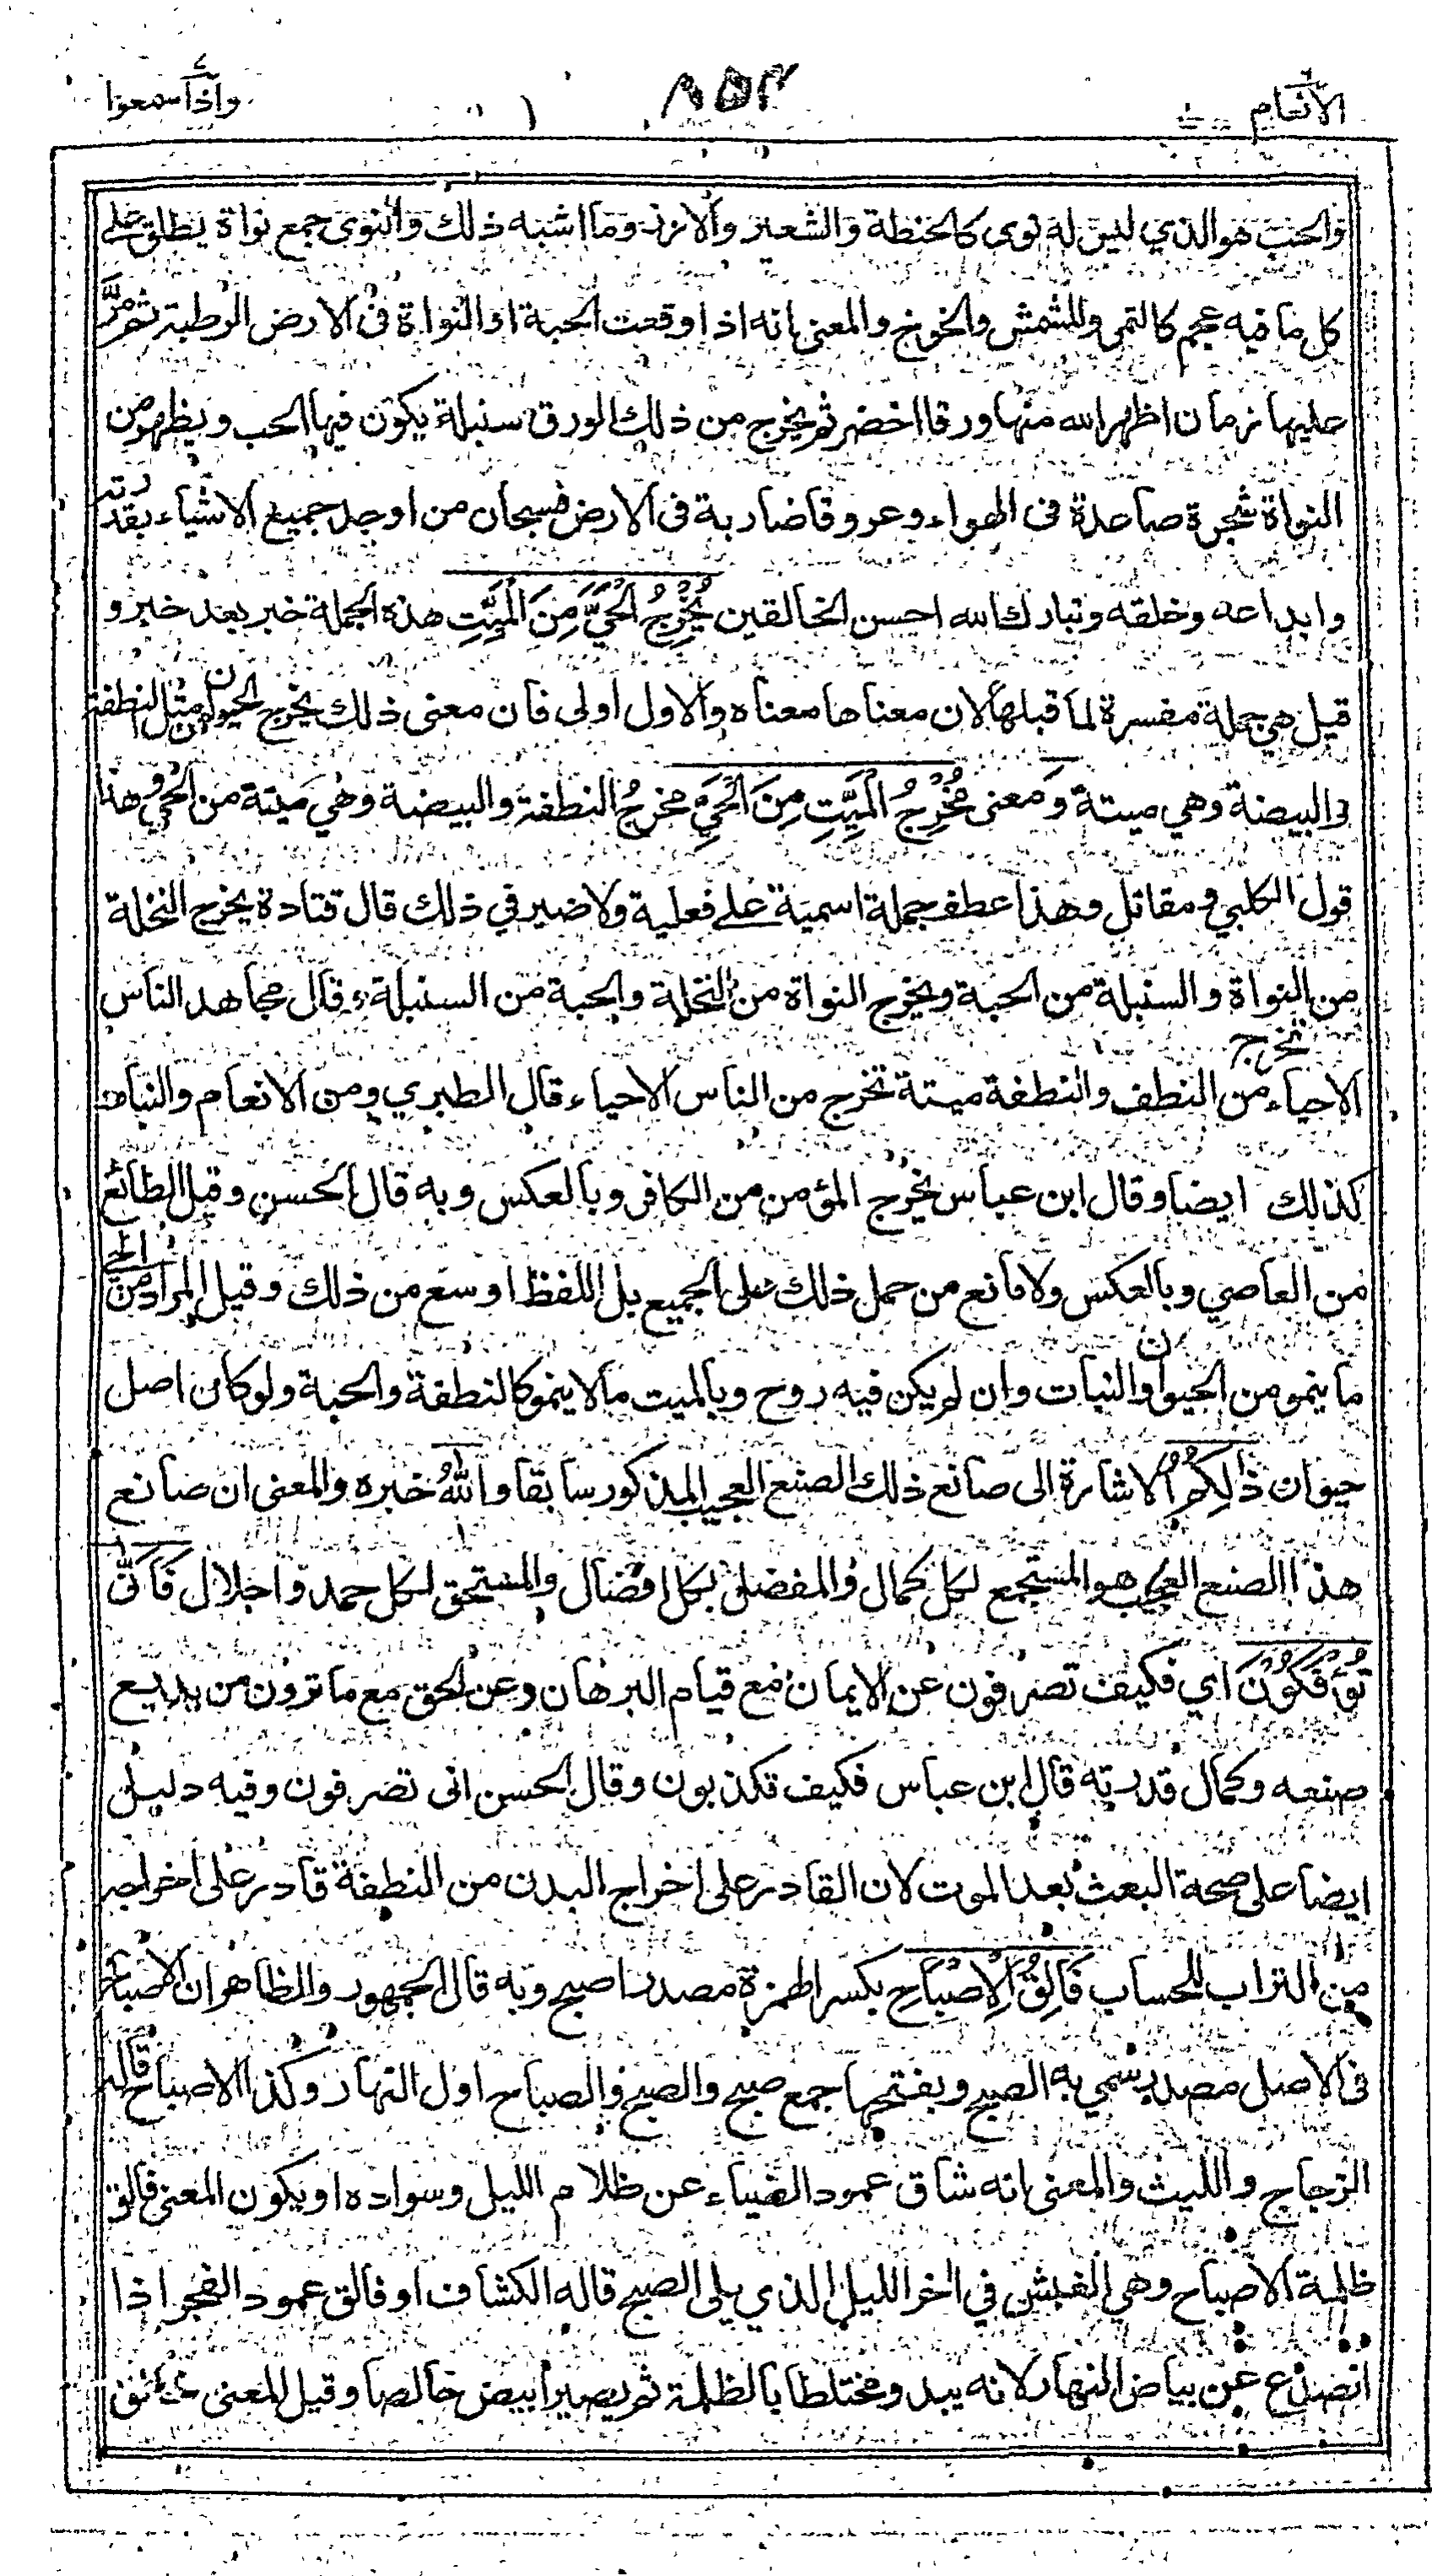 الانعام
٨٥٣
واذا سمعوا
والحب هو الذي ليس له نوى كالحنطة والشعير والارز وما اشبه ذلك والنوى جمع نواة يطلق على
كل ما فيه عجم كالتمر والمشمش والخوخ والمعنى انه اذا وقعت الحبة او النواة فى الارض الرطبة ثم مرّ
عليها زمان اظهر الله منها ورقا اخضر ثم يخرج من ذلك الورق سنبلة يكون فيها الحب ويظهر من
النواة شجرة صاعدة فى الهواء وعروقا ضاربة فى الارض فسبحان من اوجد جميع الاشياء بقدرته
وابداعه وخلقه وتبارك الله احسن الخالقين يُخْرِجُ الْحَيَّ مِنَ الْمَيِّتِ هذه الجملة خبر بعد خبر و
قيل هي جملة مفسرة لما قبلها لان معناها معناه والاول اولى فان معنى ذلك يخرج الحيوان من مثل النطفة
والبيضة وهي ميتة وَ معنى مُخْرِجُ الْمَيِّتِ مِنَ الْحَيِّ مخرج النطفة والبيضة وهي ميتة من الحي وهذا
قول الكلبي ومقاتل وهذا عطف جملة اسمية على فعلية ولا ضير في ذلك قال قتادة يخرج النخلة
من النواة والسنبلة من الحبة ويخرج النواة من النخلة والحبة من السنبلة وقال مجاهد الناس
تخرج
الاحياء من النطف والنطفة ميتة تخرج من الناس الاحياء قال الطبري ومن الانعام والنبات
كذلك ايضا وقال ابن عباس يخرج المؤمن من الكافر وبالعكس وبه قال الحسن وقيل الطائع
من العاصي وبالعكس ولا مانع من حمل ذلك على الجميع بل اللفظ اوسع من ذلك وقيل المراد من الحي
ما ينمو من الحيوان والنبات وان لم يكن فيه روح وبالميت ما لا ينمو كالنطفة والحبة ولو كان اصل
حيوان ذٰلِكُمُ الاشارة الى صانع ذلك الصنع العجيب المذكور سابقا واللّٰهُ خبره والمعنى ان صانع
هذا الصنع العجيب هو المستجمع لكل كمال والمفضل بكل افضال والمستحق لكل حمد واجلال فَاَنّٰى
تُؤْفَكُوْنَ اي فكيف تصرفون عن الايمان مع قيام البرهان وعن الحق مع ما ترون من بديع
صنعه وكمال قدرته قال ابن عباس فكيف تكذبون وقال الحسن انى تصرفون وفيه دليل
ايضا على صحة البعث بعد الموت لان القادر على اخراج البدن من النطفة قادر على اخراجه
من التراب للحساب فَالِقُ الْاِصْبَاحِ بكسر الهمزة مصدر اصبح وبه قال الجمهور والظاهر ان الاصباح
فى الاصل مصدر سمي به الصبح وبفتحها جمع صبح والصبح والصباح اول النهار وكذا الاصباح قاله
الزجاج والليث والمعنى انه شاق عمود الضياء عن ظلام الليل وسواده او يكون المعنى فالق
ظلمة الاصباح وهي الغبش في اخر الليل الذي يلي الصبح قاله الكشاف او فالق عمود الفجر اذا
انصدع عن بياض النهار لانه يبدو مختلطا بالظلمة ثم يصير ابيض خالصا وقيل المعنى خالق